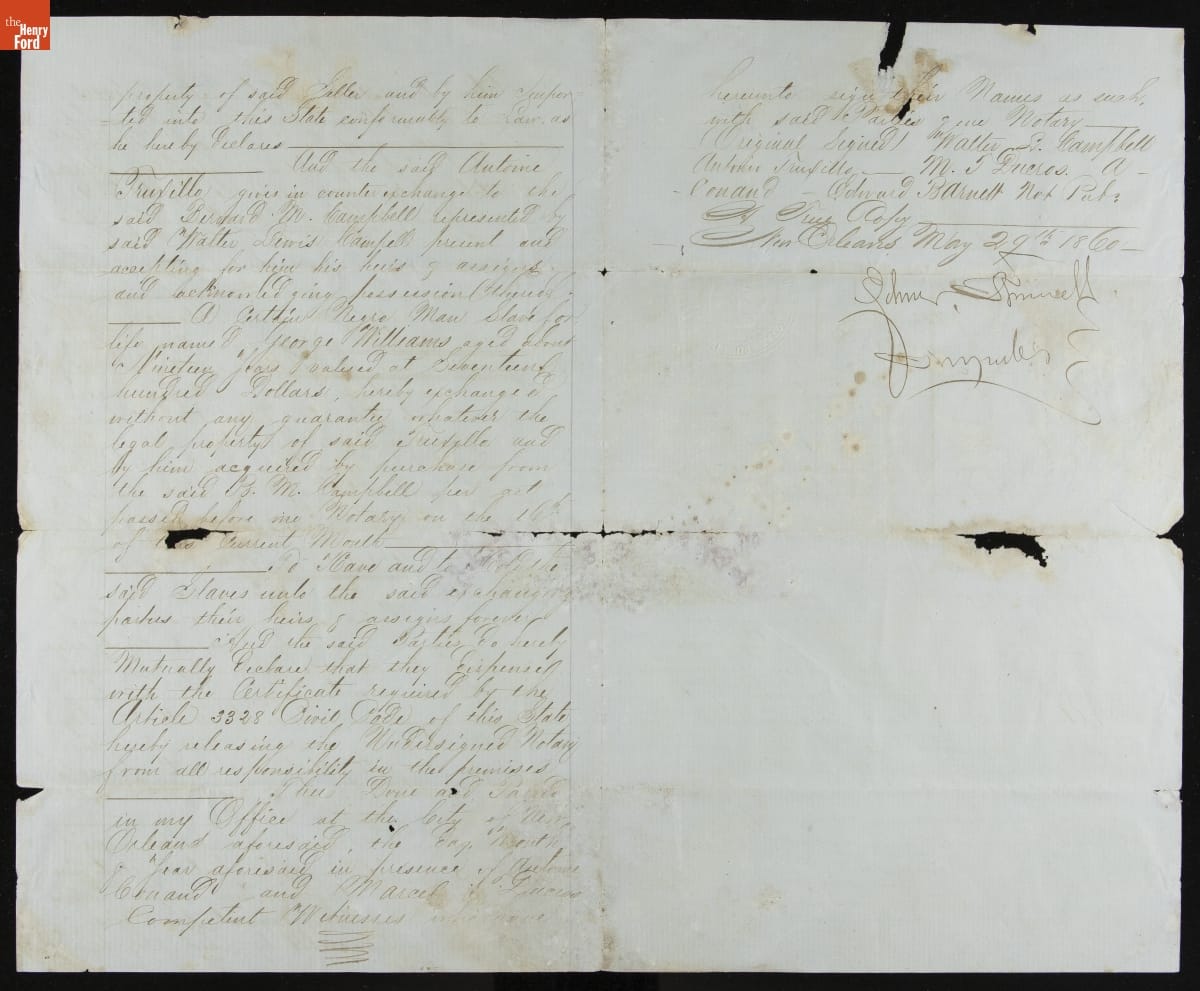 the
Henry
Ford
property of said Seller and by him impor-
-ted into this State conformably to Law. as
he hereby Declares
And the said Antoine
Truxillo gives in counter exchange to the
said Bernard M. Campbell represented by
said Walter Lewis Campell present and
accepting for him his heirs & assigns
and acknowledging possession thereof
A Certain Negro Man Slave for
life named George Williams aged about
Nineteen years valued at Seventeen
hundred Dollars, hereby exchanged
without any guaranty whatever the
legal property of said Truxyllo and
by him acquired by purchase from
the said B. M. Campbell per act
passed before me Notary on the 16th
of this Current Month
To Have and to Hold the
said Slaves unto the said exchanging
parties their heirs & assigns forever
And the said Parties do hereby
Mutually Declare that they Dispense
with the Certificate required by the
Article 3328 Civil Code of this State
hereby releasing the Undersigned Notary
from all responsibility in the premises
Thus Done and Passed
in my Office at the City of New
Orleans aforesaid, the Day, Month
& Year aforesaid in presence of Antoine
Conand and Marcel T Ducros
Competent Witnesses who have
hereunto sign their Names as such,
with said Parties & me Notary
Original Signed Walter L. Campbell
Antoine Truxillo — M. T Ducros. A
-Conand — Edward Barnett Not Pub:
A True Copy
New Orleans May 29th 1860